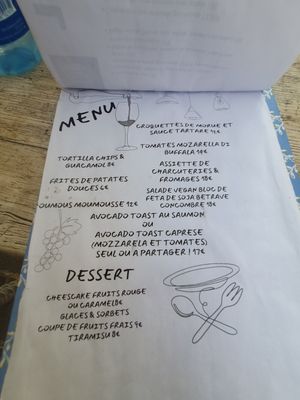 MENU
CROQUETTES DE MORUE ET
SAUCE TARTARE 9€
TOMATES MOZARELLA DI
BUFFALA 14€
TORTILLA CHIPS &
GUACAMOL 8€
ASSIETTE DE
CHARCUTERIES &
FROMAGES 18€
FRITES DE PATATES
DOUCES 6€
SALADE VEGAN BLOC DE
FETA DE SOJA BETRAVE
CONCOMBRE 18€
HOUMOUS MOUMOUSSE 12€
AVOCADO TOAST AU SAUMON
OU
AVOCADO TOAST CAPRESE
(MOZZARELA ET TOMATES)
SEUL OU A PARTAGER ! 17€
DESSERT
CHEESCAKE FRUITS ROUGE
OU CARAMEL 8€
GLACES & SORBETS
COUPE DE FRUITS FRAIS 9€
TIRAMISU 8€